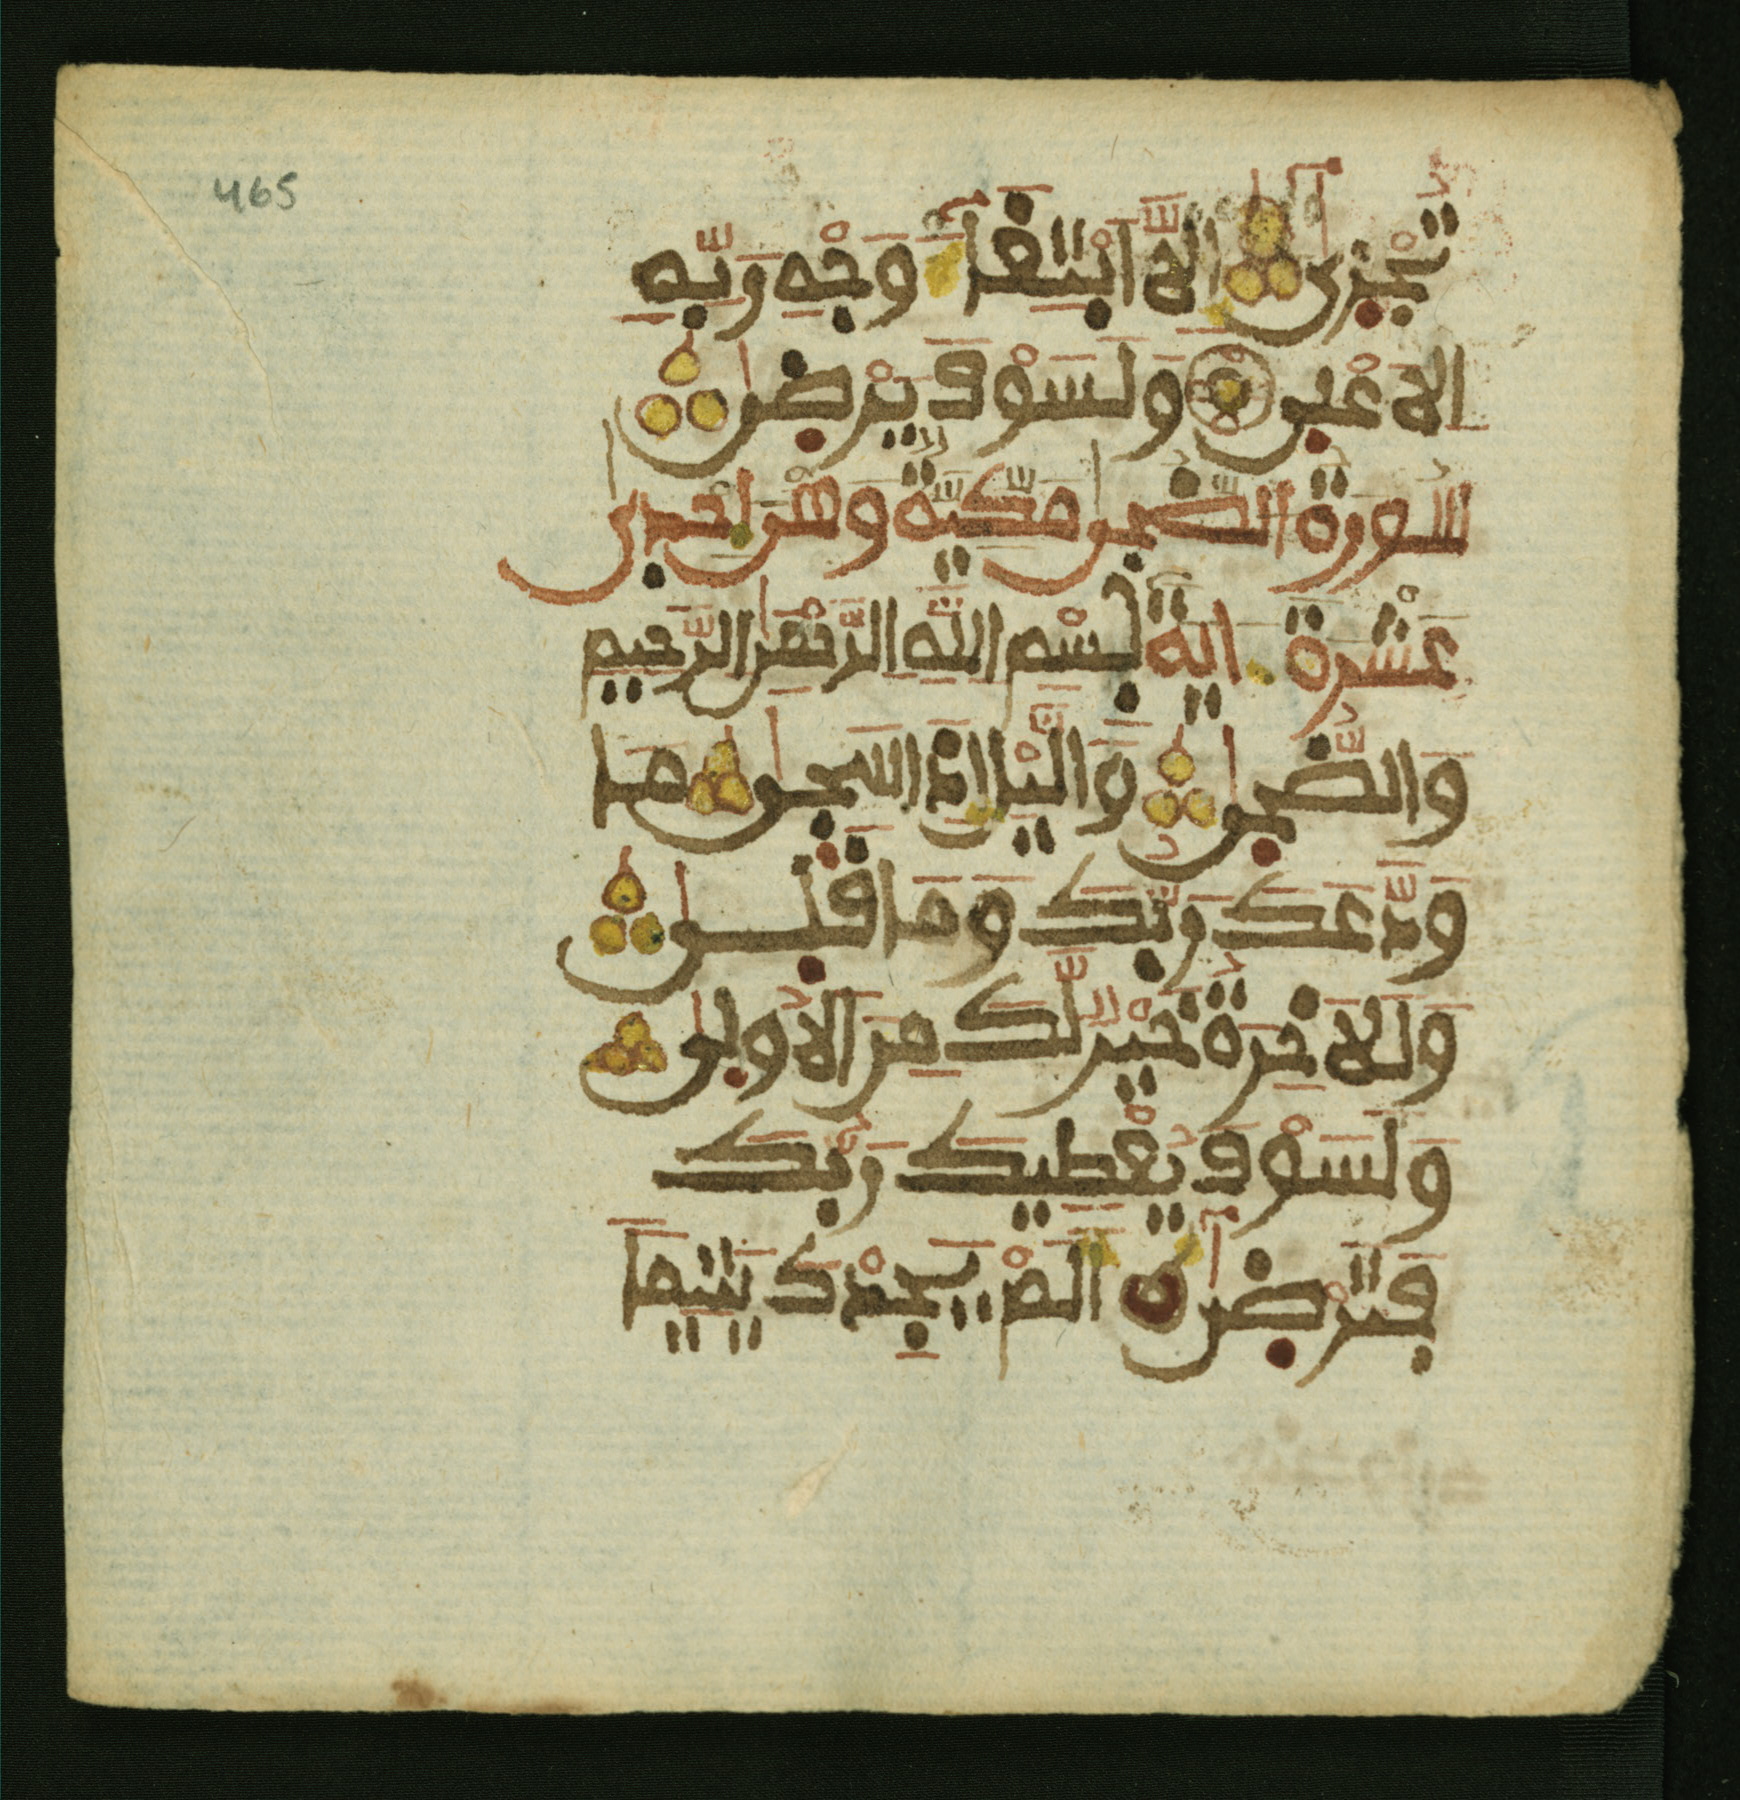 465
تُجْزَىٰٓ إِلَّا ٱبْتِغَآءَ وَجْهِ رَبِّهِ
ٱلَاعْلَىٰ وَلَسَوْفَ يَرْضَىٰ
سُورَةُ ٱلضُّحَىٰ مَكِّيَّةٌ وَهْىَ إِحْدَىٰ
عَشْرَةَ ءَايَةً بِسْمِ ٱللَّهِ ٱلرَّحْمَٰنِ ٱلرَّحِيمِ
وَٱلضُّحَىٰ وَٱلَّيْلِ إِذَا سَجَىٰ مَا
وَدَّعَكَ رَبُّكَ وَمَا قَلَىٰ
وَلَلَاخِرَةُ خَيْرٌ لَّكَ مِنَ ٱلُاولَىٰ
وَلَسَوْفَ يُعْطِيكَ رَبُّكَ
فَتَرْضَىٰٓ أَلَمْ يَجِدْكَ يَتِيمًا